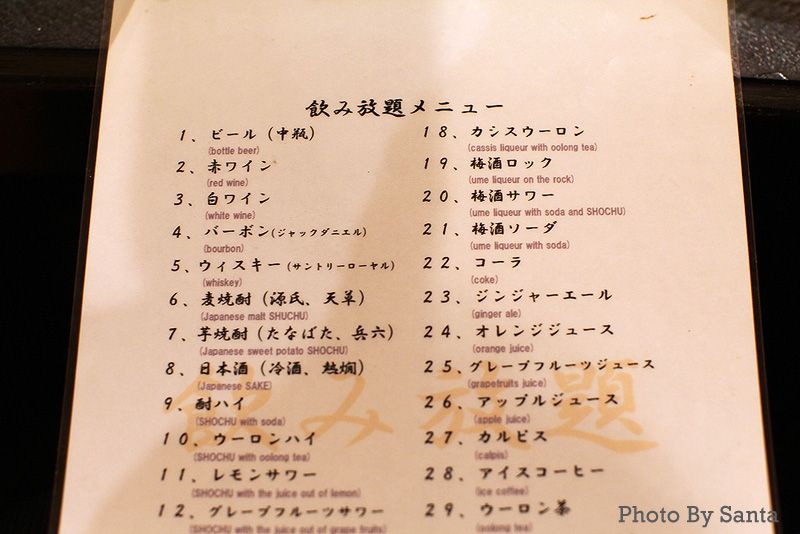 飲み放題メニュー
1、ビール（中瓶）
(bottle beer)
2、赤ワイン
(red wine)
3、白ワイン
(white wine)
4、バーボン(ジャックダニエル)
(bourbon)
5、ウィスキー(サントリーローヤル)
(whiskey)
6、麦焼酎（源氏、天草）
(Japanese malt SHUCHU)
7、芋焼酎（たなばた、兵六）
(Japanese sweet potato SHOCHU)
8、日本酒（冷酒、熱燗）
(Japanese SAKE)
9、酎ハイ
(SHOCHU with soda)
10、ウーロンハイ
(SHOCHU with oolong tea)
11、レモンサワー
(SHOCHU with the juice out of lemon)
12、グレープフルーツサワー
(SHOCHU with the juice out of grape fruits)
18、カシスウーロン
(cassis liqueur with oolong tea)
19、梅酒ロック
(ume liqueur on the rock)
20、梅酒サワー
(ume liqueur with soda and SHOCHU)
21、梅酒ソーダ
(ume liqueur with soda)
22、コーラ
(coke)
23、ジンジャーエール
(ginger ale)
24、オレンジジュース
(orange juice)
25、グレープフルーツジュース
(grapefruits juice)
26、アップルジュース
(apple juice)
27、カルピス
(calpis)
28、アイスコーヒー
(ice coffee)
29、ウーロン茶
(oolong tea)
飲み放題
Photo By Santa